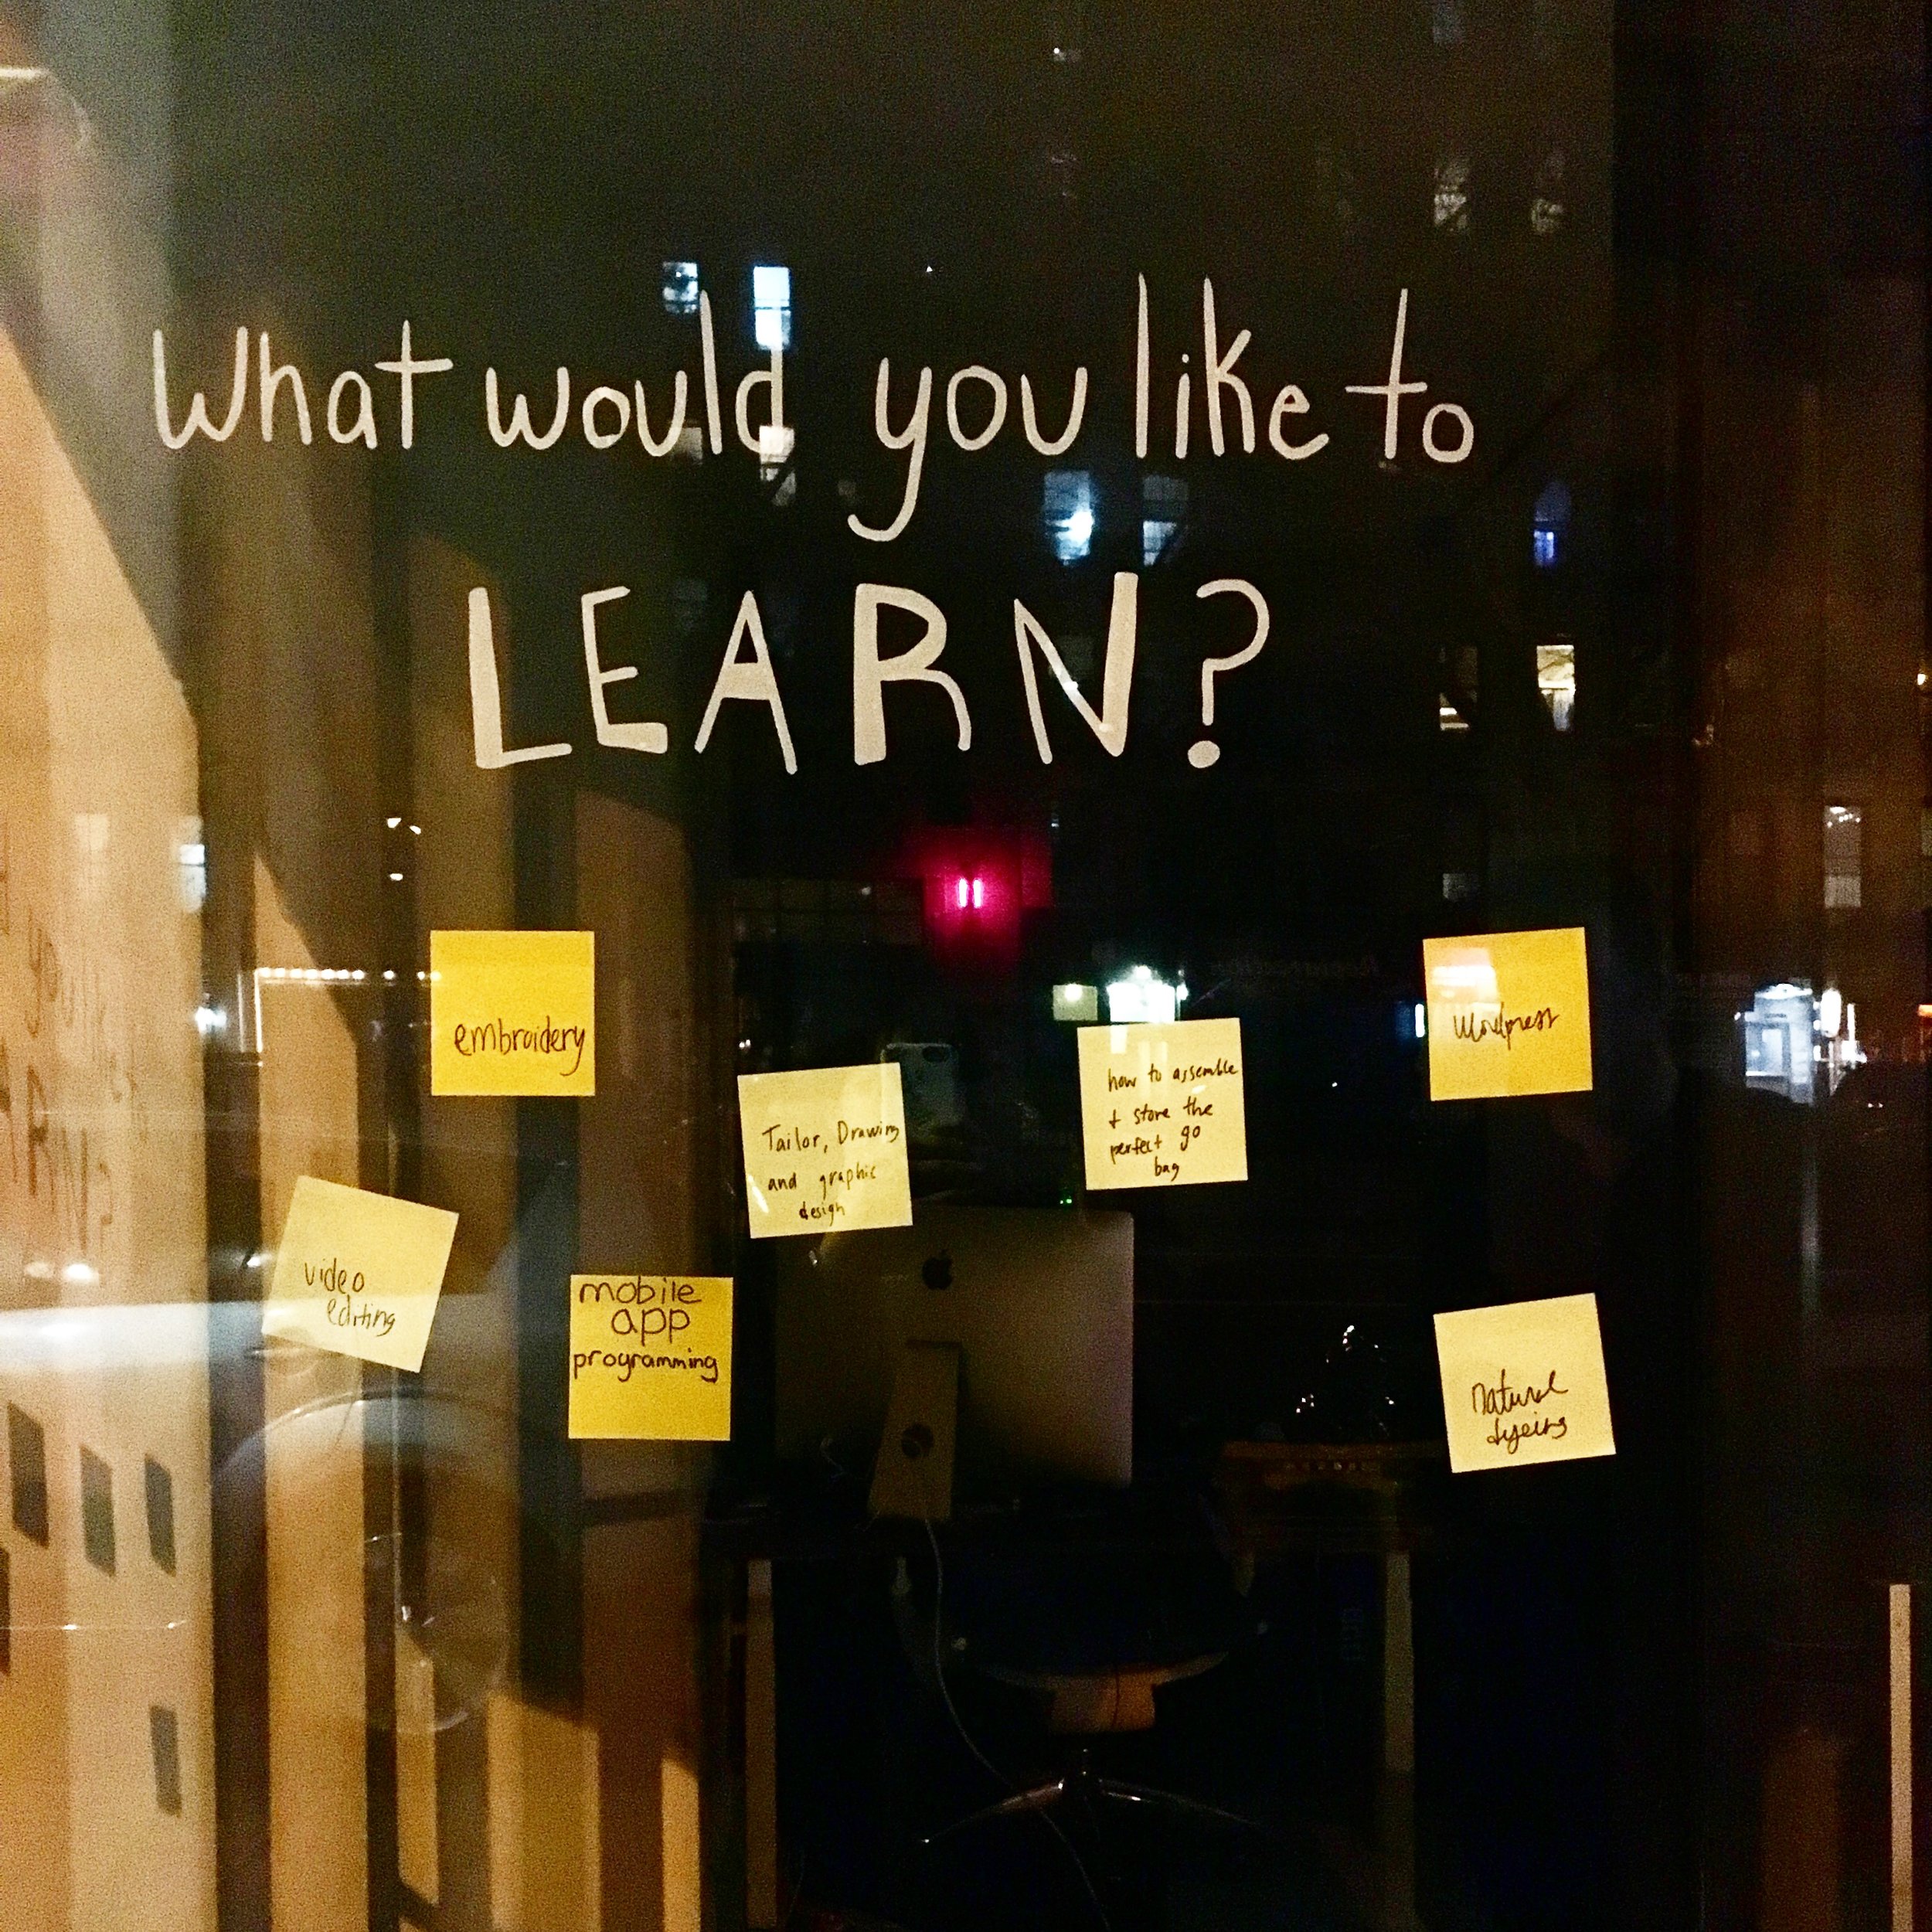 What would you like to
LEARN?
embroidery
Tailor, Drawing
and graphic
design
how to assemble
+ store the
perfect go
bag
Wordpress
video
editing
mobile
app
programming
natural
dyeing